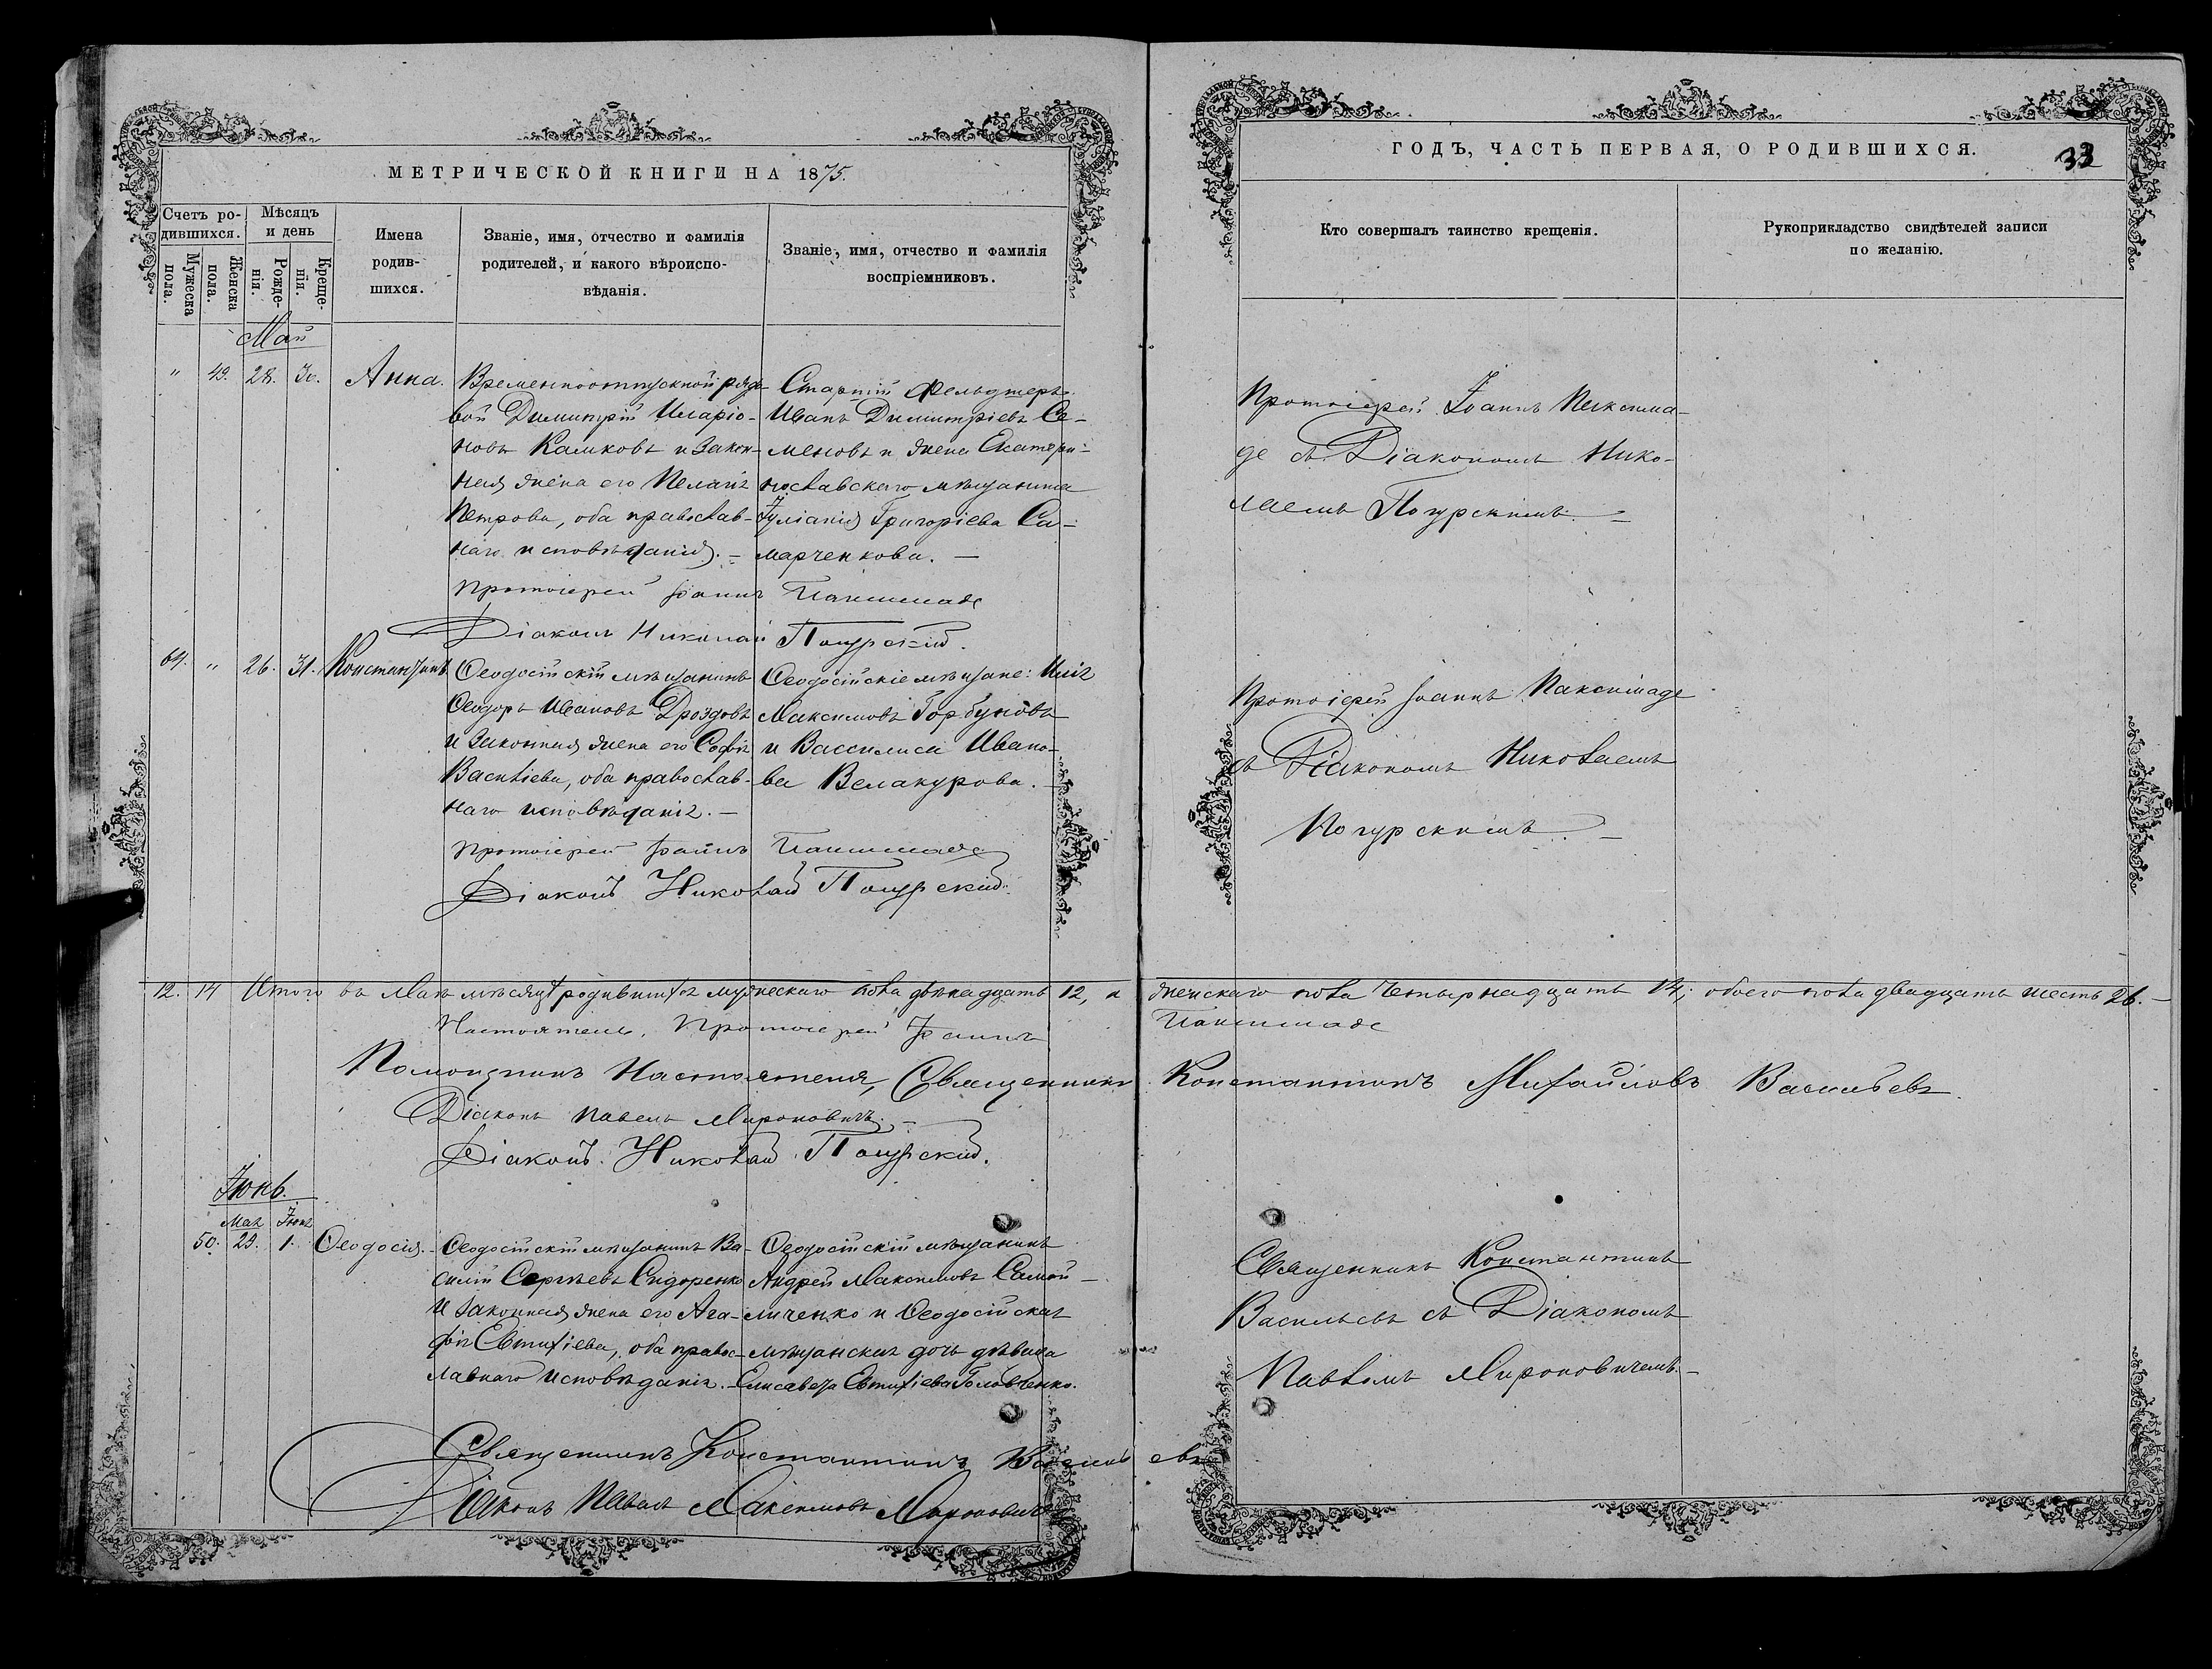 МЕТРИЧЕСКОЙ КНИГИ НА 1875.
Счетъ родившихся.
Мужеска пола.
Женска пола.
Мѣсяцъ и день
Рожденія.
Крещенія.
Имена родившихся.
Званіе, имя, отчество и фамилія родителей, и какого вѣроисповѣданія.
Званіе, имя, отчество и фамилія воспріемниковъ.
Май
" 49. 28. 30. Анна.
Временноотпускной рядо-
вой Димитрій Иларіо-
новъ Калмковъ и закон-
ная жена его Пелагія
Петрова, оба православ-
наго исповѣданія. –
Старшій Фельдшеръ
Иванъ Димитріевъ Се-
меновъ и жена Екатери-
нославскаго мѣщанина
Іуліанія Григоріева Са-
марченкова. –
Протоіерей Іоаннъ Паксимаде
Діаконъ Николай Погурскій.
64. " 26. 31. Константинъ.
Ѳеодосійскій мѣщанинъ
Ѳеодоръ Ивановъ Дроздовъ
и законная жена его Софія
Васильева, оба православ-
наго исповѣданія. –
Ѳеодосійскіе мѣщане: Илія
Максимовъ Горбуновъ
и Вассилиса Ивано-
ва Велакурова. –
Протоіерей Іоаннъ Паксимаде
Діаконъ Николай Погурскій.
12. 14 Итого въ Маѣ мѣсяцѣ родившихся мужескаго пола двѣнадцать 12, а женскаго пола четырнадцать 14; обоего пола двадцать шесть 26. –
Настоятель, Протоіерей Іоаннъ Паксимаде
Помощникъ Настоятеля, Священникъ Константинъ Михайловъ Васильевъ.
Діаконъ Павелъ Мироновичъ. –
Діаконъ Николай Погурскій.
Іюнь.
Мая Іюня
50. 29. 1. Ѳеодосія.
Ѳеодосійскій мѣщанинъ Ва-
силій Сергѣевъ Сидоренко
и законная жена его Ага-
фія Евтихіева, оба правос-
лавнаго исповѣданія. –
Ѳеодосійскій мѣщанинъ
Андрей Максимовъ Самой-
личенко и Ѳеодосійская
мѣщанская дочь дѣвица
Елисавета Евтихіева Головченко.
Священникъ Константинъ Васильевъ
Діаконъ Павелъ Максимовъ Мироновичъ
ГОДЪ, ЧАСТЬ ПЕРВАЯ, О РОДИВШИХСЯ.
33
Кто совершалъ таинство крещенія.
Рукоприкладство свидѣтелей записи по желанію.
Протоіерей Іоаннъ Паксима-
де съ Діакономъ Нико-
лаемъ Погурскимъ. –
Протоіерей Іоаннъ Паксимаде
съ Діакономъ Николаемъ
Погурскимъ. –
Священникъ Константинъ
Васильевъ съ Діакономъ
Павломъ Мироновичемъ. –